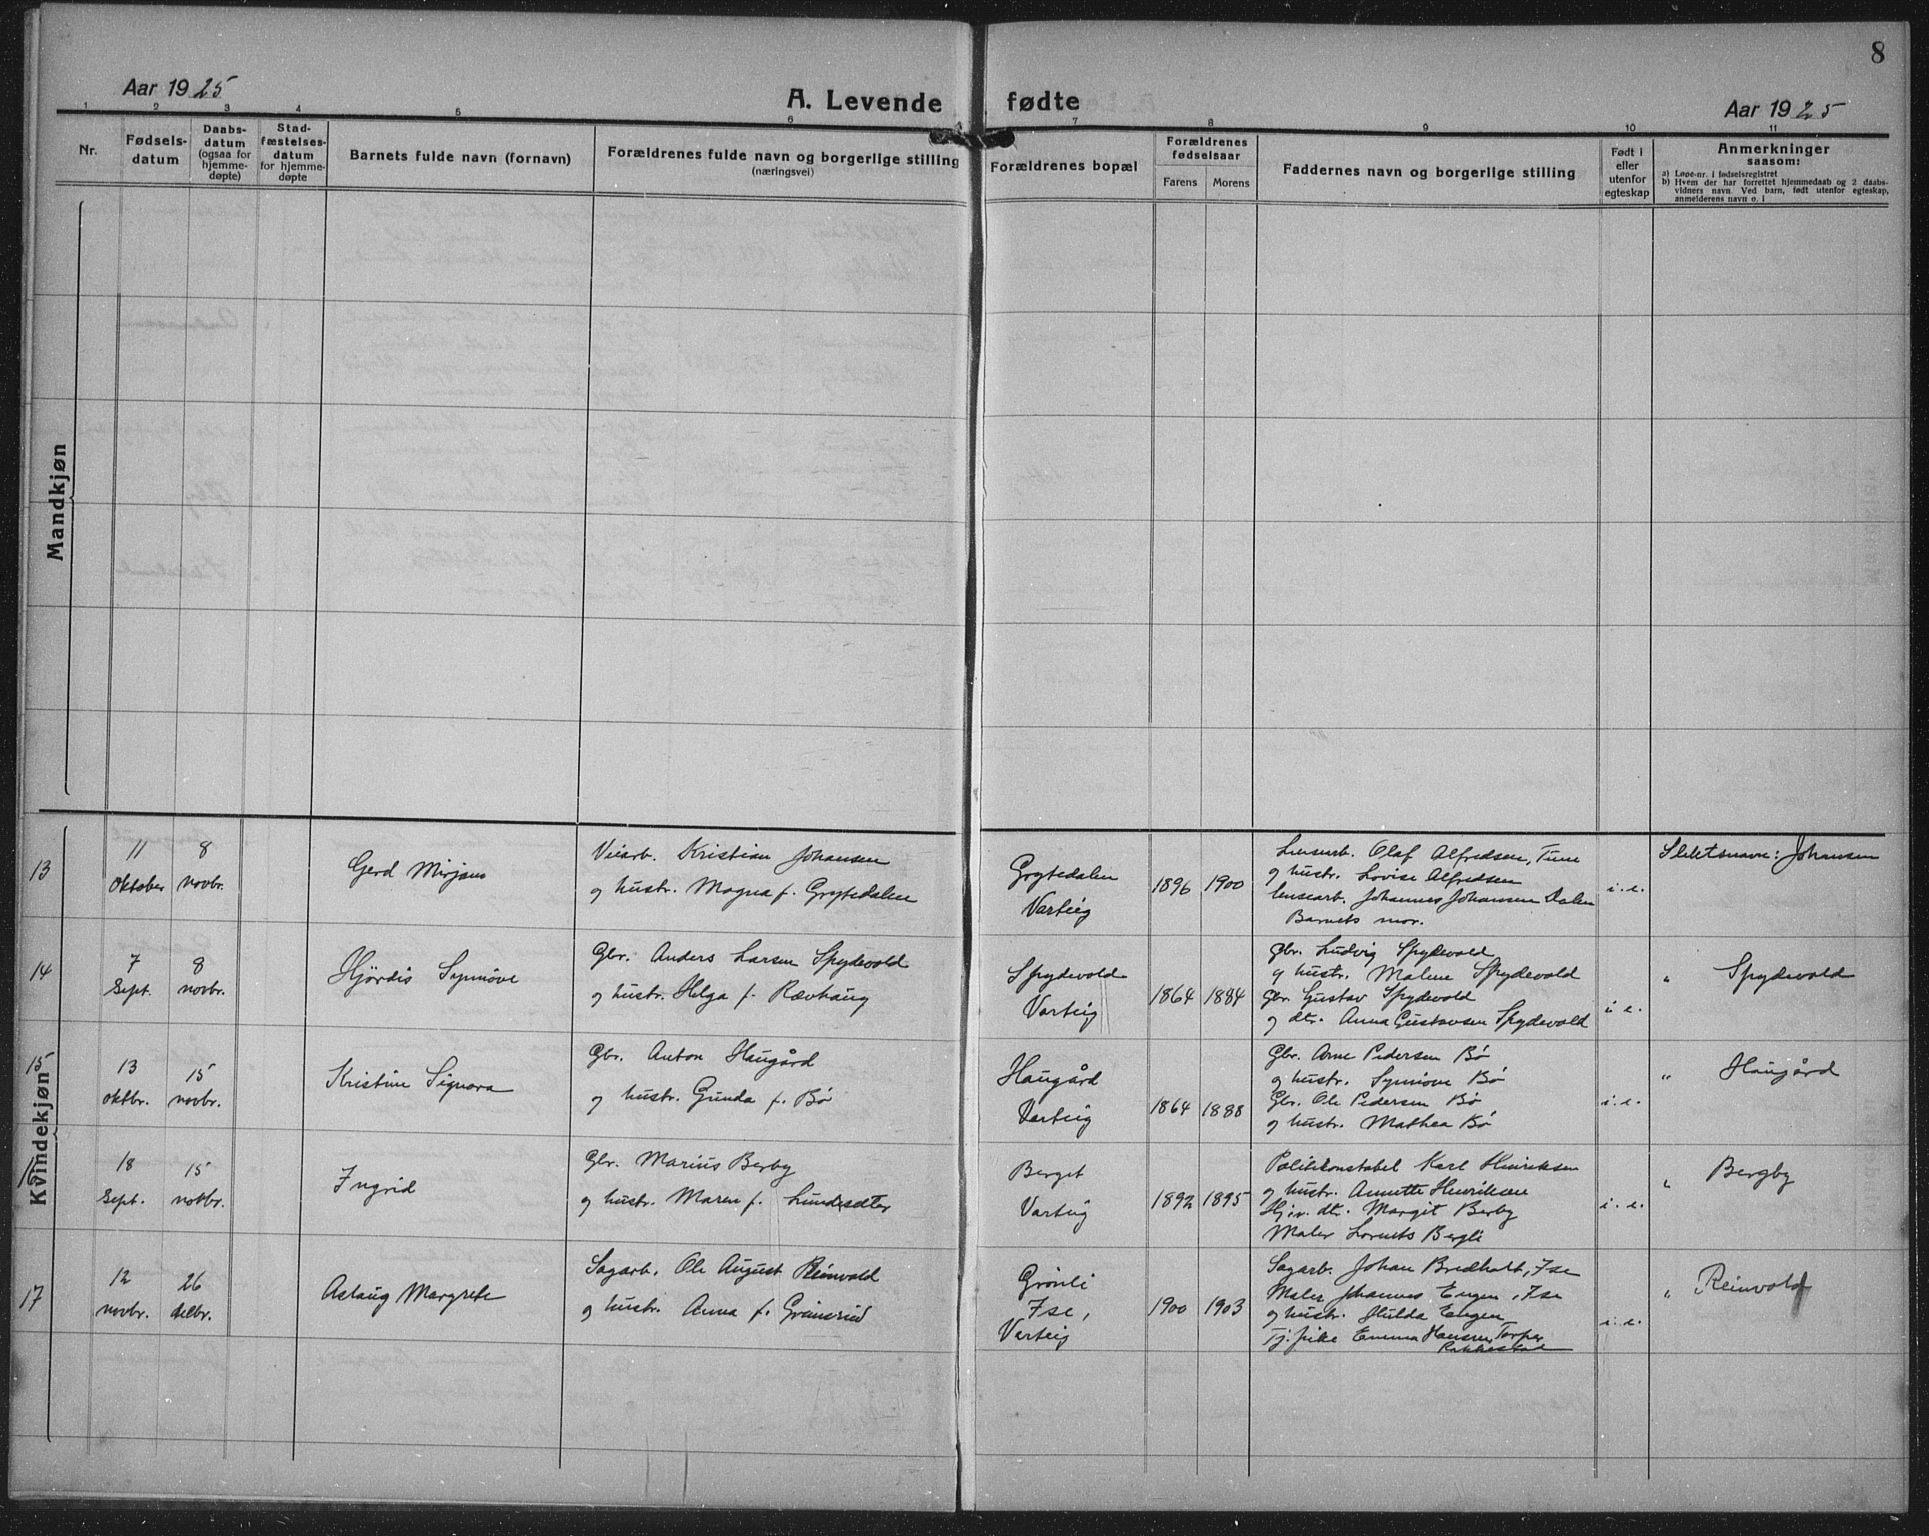 8
Aar 1925
A. Levende fødte
Aar 1925
1 2 3 4 5 6 7 8 9 10 11
Nr.
Fødsels-
datum
Daabs-
datum
(ogsaa for
hjemme-
døpte)
Stad-
fæstelses-
datum
for hjemme-
døpte
Barnets fulde navn (fornavn)
Forældrenes fulde navn og borgerlige stilling
(næringsvei)
Forældrenes bopæl
Forældrenes
fødselsaar
Farens Morens
Faddernes navn og borgerlige stilling
Født i
eller
utenfor
egteskap
Anmerkninger
saasom:
a) Løpe-nr. i fødselsregistret
b) Hvem der har forrettet hjemmedaab og 2 daabs-
vidners navn. Ved barn, født utenfor egteskap,
anmelderens navn o. l
Mandkjøn
Kvindekjøn
13
11
oktober
8
novbr.
Gerd Mirjam
Veiarb. Kristian Johansen
og hustr. Magna f. Grytedalen
Grytedalen
Varteig
1896 1900
Lensarb. Olaf Alfredsen, Tune
og hustr. Lovise Alfredsen
lensearb. Johannes Johansen Dalen
Barnets mor.
i. e.
Slektsnavn: Johansen
14
7
Sept.
8
novbr.
Hjørdis Synnøve
Gbr. Anders Larsen Spydevold
og hustr. Helga f. Rævhaug
Spydevold
Varteig
1864 1884
Gbr. Ludvig Spydevold
og hustr. Malene Spydevold
Gbr. Gustav Spydevold
og dtr. Anna Gustavsen Spydevold
i e.
" Spydevold
15
13
oktbr.
15
novbr.
Kristine Signora
Gbr. Anton Haugård
og hustr. Gunda f. Bø
Haugård
Varteig
1864 1888
Gbr. Arne Pedersen Bø
og hustr. Synnøve Bø
Gbr. Ole Pedersen Bø
og hustr. Mathea Bø
i. e.
" Haugård
16
18
Sept.
15
novbr.
Ingrid
Gbr. Marius Berby
og hustr. Maren f. Lundesæter
Berget
Varteig
1892 1895
Politikonstabel Karl Henriksen
og hustr. Annette Henriksen
Hjv. dtr. Margit Berby
Maler Bergli
i. e.
" Bergby
17
12
novbr.
26
desbr.
Aslaug Margrete
Sagarb. Ole August Reinvold
og hustr. Anna f. Grønsrud
Grønli
Ise,
Varteig
1900 1903
Sagarb. Johan Bredholt, Ise
Maler Johannes Engen, Ise
og hustr. Hulda Engen
Tj. pike Emma Hansen, Torper
Rakkestad
i. e.
" Reinvold